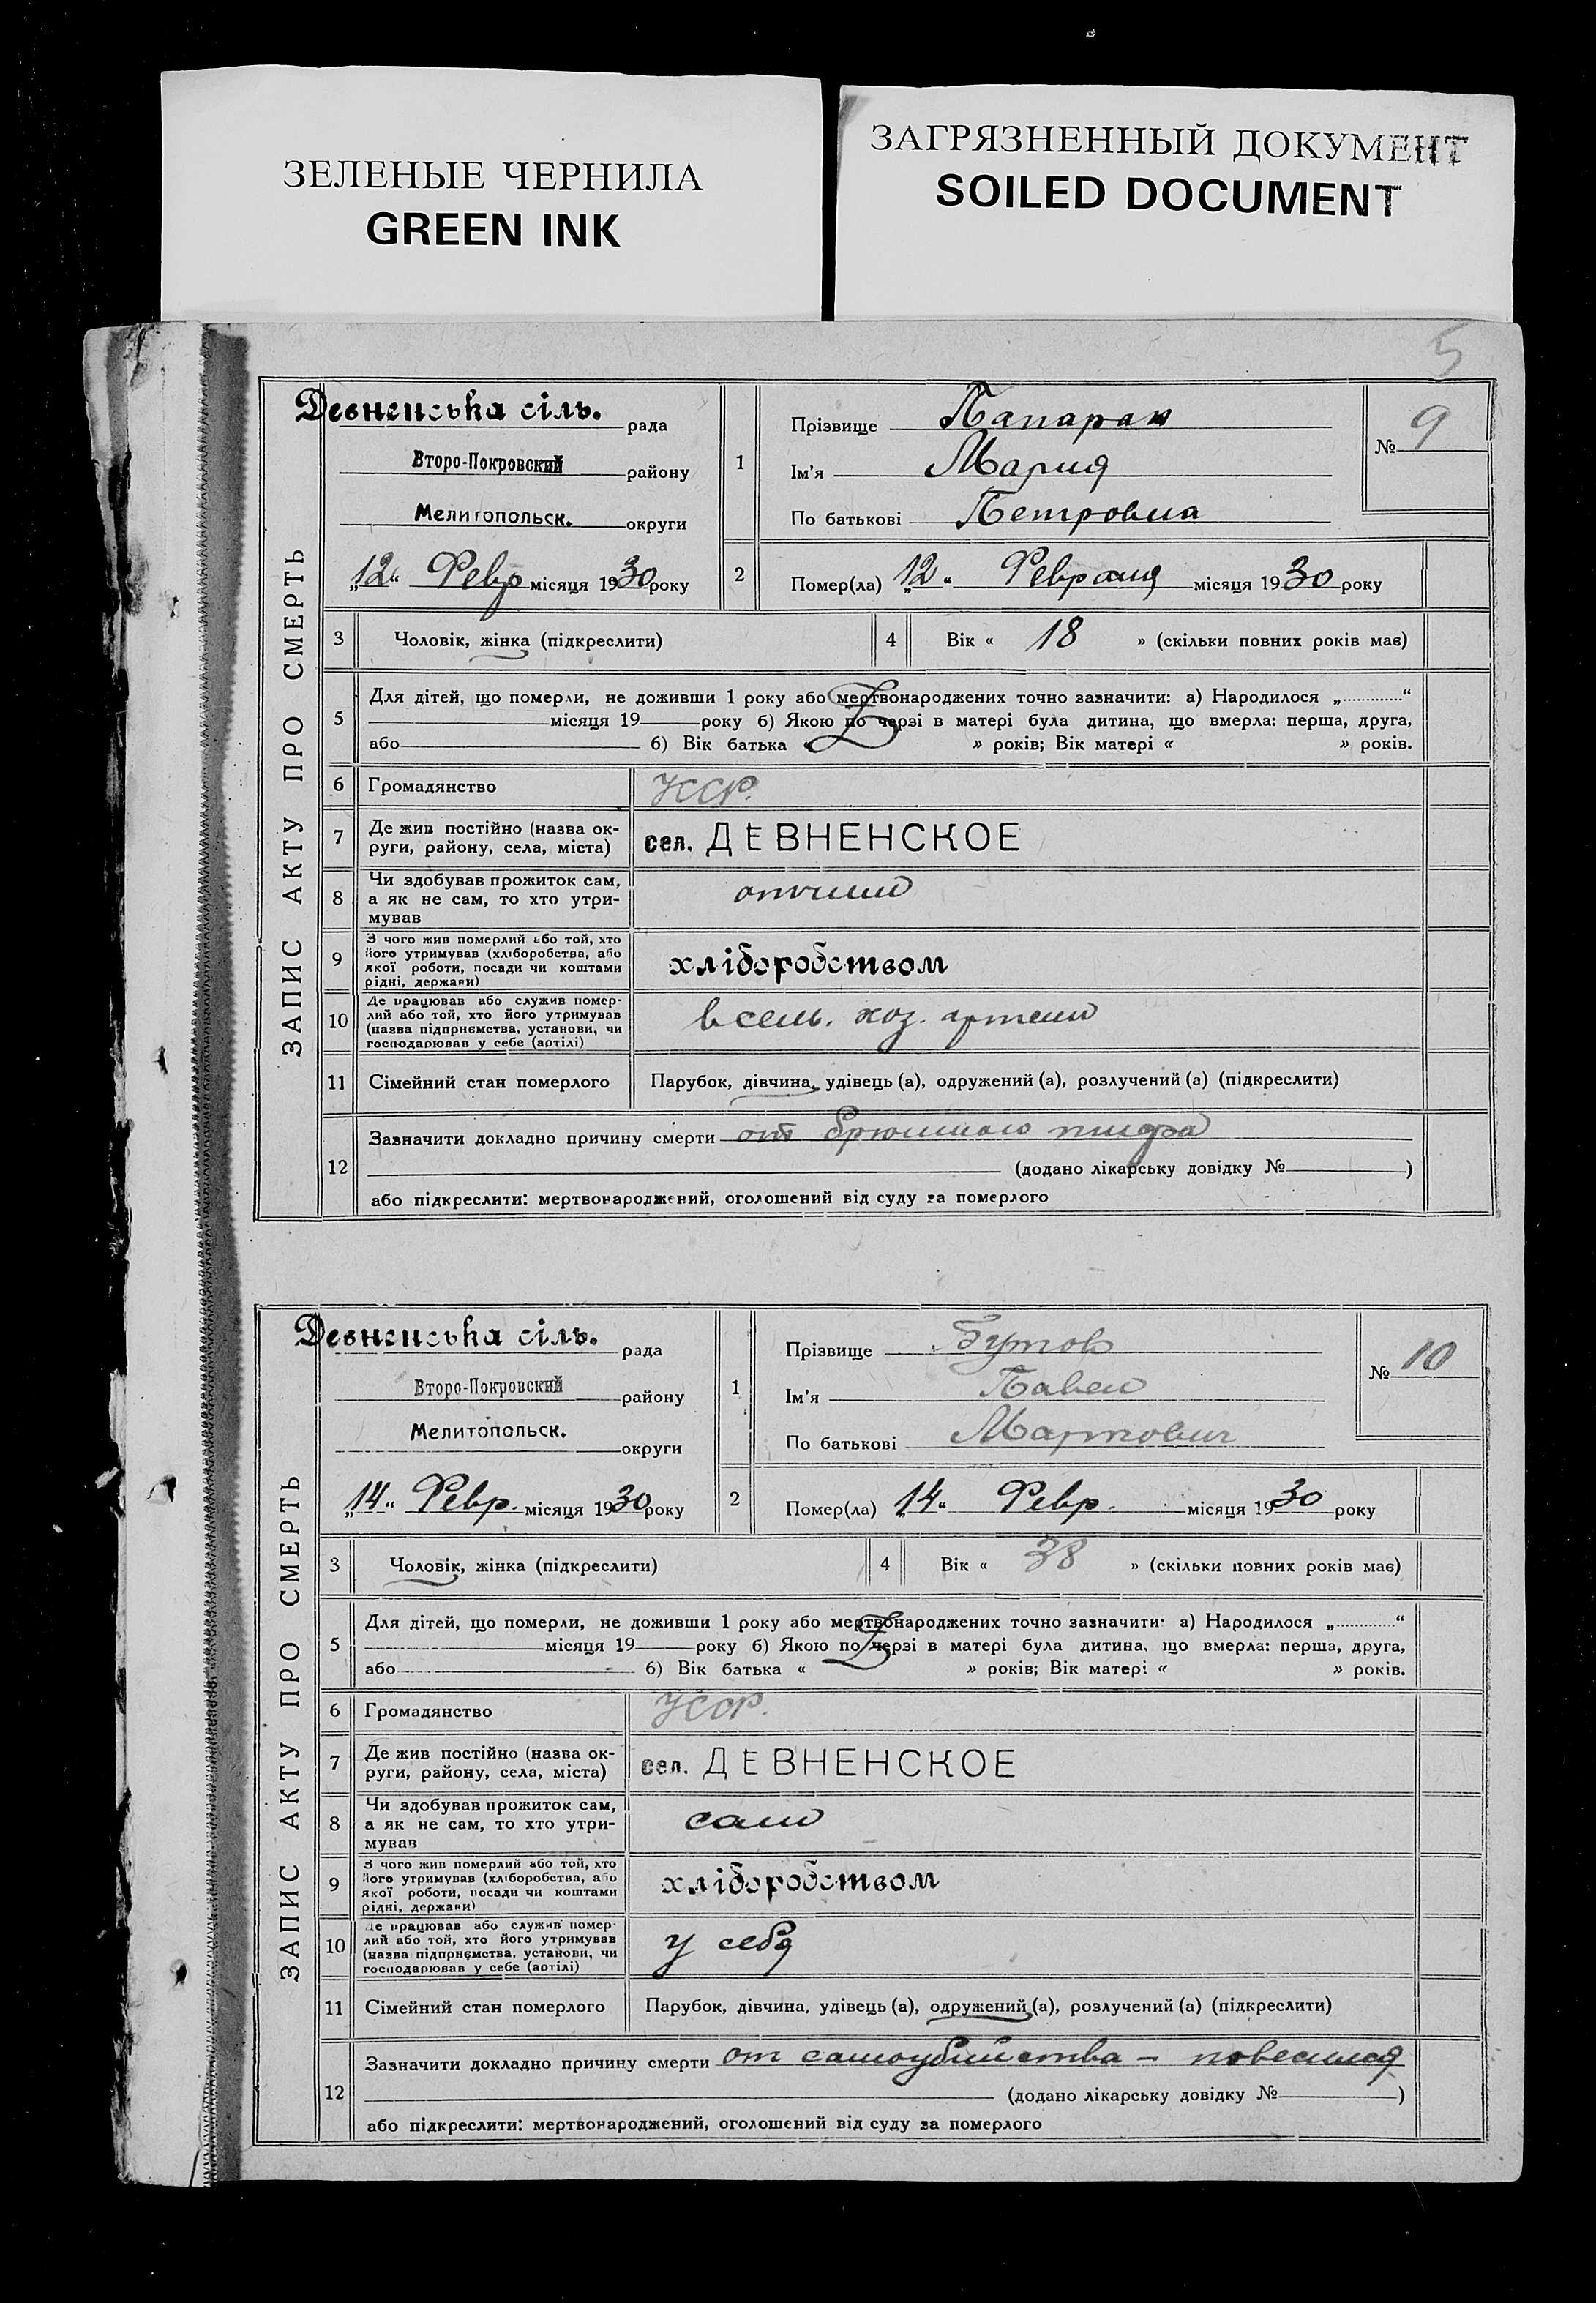 ЗЕЛЕНЫЕ ЧЕРНИЛА
GREEN INK
ЗАГРЯЗНЕННЫЙ ДОКУМЕНТ
SOILED DOCUMENT
5
ЗАПИС АКТУ ПРО СМЕРТЬ
Девненська сіль. рада
Второ-Покровский району
Мелитопольск. округи
„12“ Февр місяця 1930 року
1
Прізвище Папарак
Ім'я Мария
По батькові Петровна
№ 9
2 Помер(ла) „12“ Февраля місяця 1930 року
3 Чоловік, жінка (підкреслити)
4 Вік « 18 » (скільки повних років має)
5 Для дітей, що померли, не доживши 1 року або мертвонароджених точно зазначити: а) Народилося „ “
місяця 19 року б) Якою по черзі в матері була дитина, що вмерла: перша, друга,
або б) Вік батька « » років; Вік матері « » років.
6 Громадянство УССР.
7 Де жив постійно (назва округи, району, села, міста) сел. ДЕВНЕНСКОЕ
8 Чи здобував прожиток сам,
а як не сам, то хто утри-
мував
9 З чого жив померлий або той, хто
його утримував (хліборобства, або
якої роботи, посади чи коштами
рідні, держави)
хліборобством
10 Де працював або служив помер-
лий або той, хто його утримував
(назва підприємства, установи, чи
господарював у себе (артілі)
в сель. хоз. артели
11 Сімейний стан померлого Парубок, дівчина, удівець (а), одружений (а), розлучений (а) (підкреслити)
12 Зазначити докладно причину смерти от брюшного тифа
(додано лікарську довідку № )
або підкреслити: мертвонароджений, оголошений від суду за померлого
ЗАПИС АКТУ ПРО СМЕРТЬ
Девненська сіль. рада
Второ-Покровский району
Мелитопольск. округи
„14“ Февр. місяця 1930 року
1
Прізвище Бутов
Ім'я Павел
По батькові Маркович
№ 10
2 Помер(ла) „14“ Февр. місяця 1930 року
3 Чоловік, жінка (підкреслити)
4 Вік « 38 » (скільки повних років має)
5 Для дітей, що померли, не доживши 1 року або мертвонароджених точно зазначити: а) Народилося „ “
місяця 19 року б) Якою по черзі в матері була дитина, що вмерла: перша, друга,
або б) Вік батька « » років; Вік матері « » років.
6 Громадянство УССР.
7 Де жив постійно (назва ок-
руги, району, села, міста)
сел. ДЕВНЕНСКОЕ
8 Чи здобував прожиток сам,
а як не сам, то хто утри-
мував
сам
9 З чого жив померлий або той, хто
його утримував (хліборобства, або
якої роботи, посади чи коштами
рідні, держави)
хліборобством
10 Де працював або служив помер-
лий або той, хто його утримував
(назва підприємства, установи, чи
господарював у себе (артілі)
у себя
11 Сімейний стан померлого Парубок, дівчина, удівець (а), одружений (а), розлучений (а) (підкреслити)
12 Зазначити докладно причину смерти от самоубийства – повесился
(додано лікарську довідку № )
або підкреслити: мертвонароджений, оголошений від суду за померлого